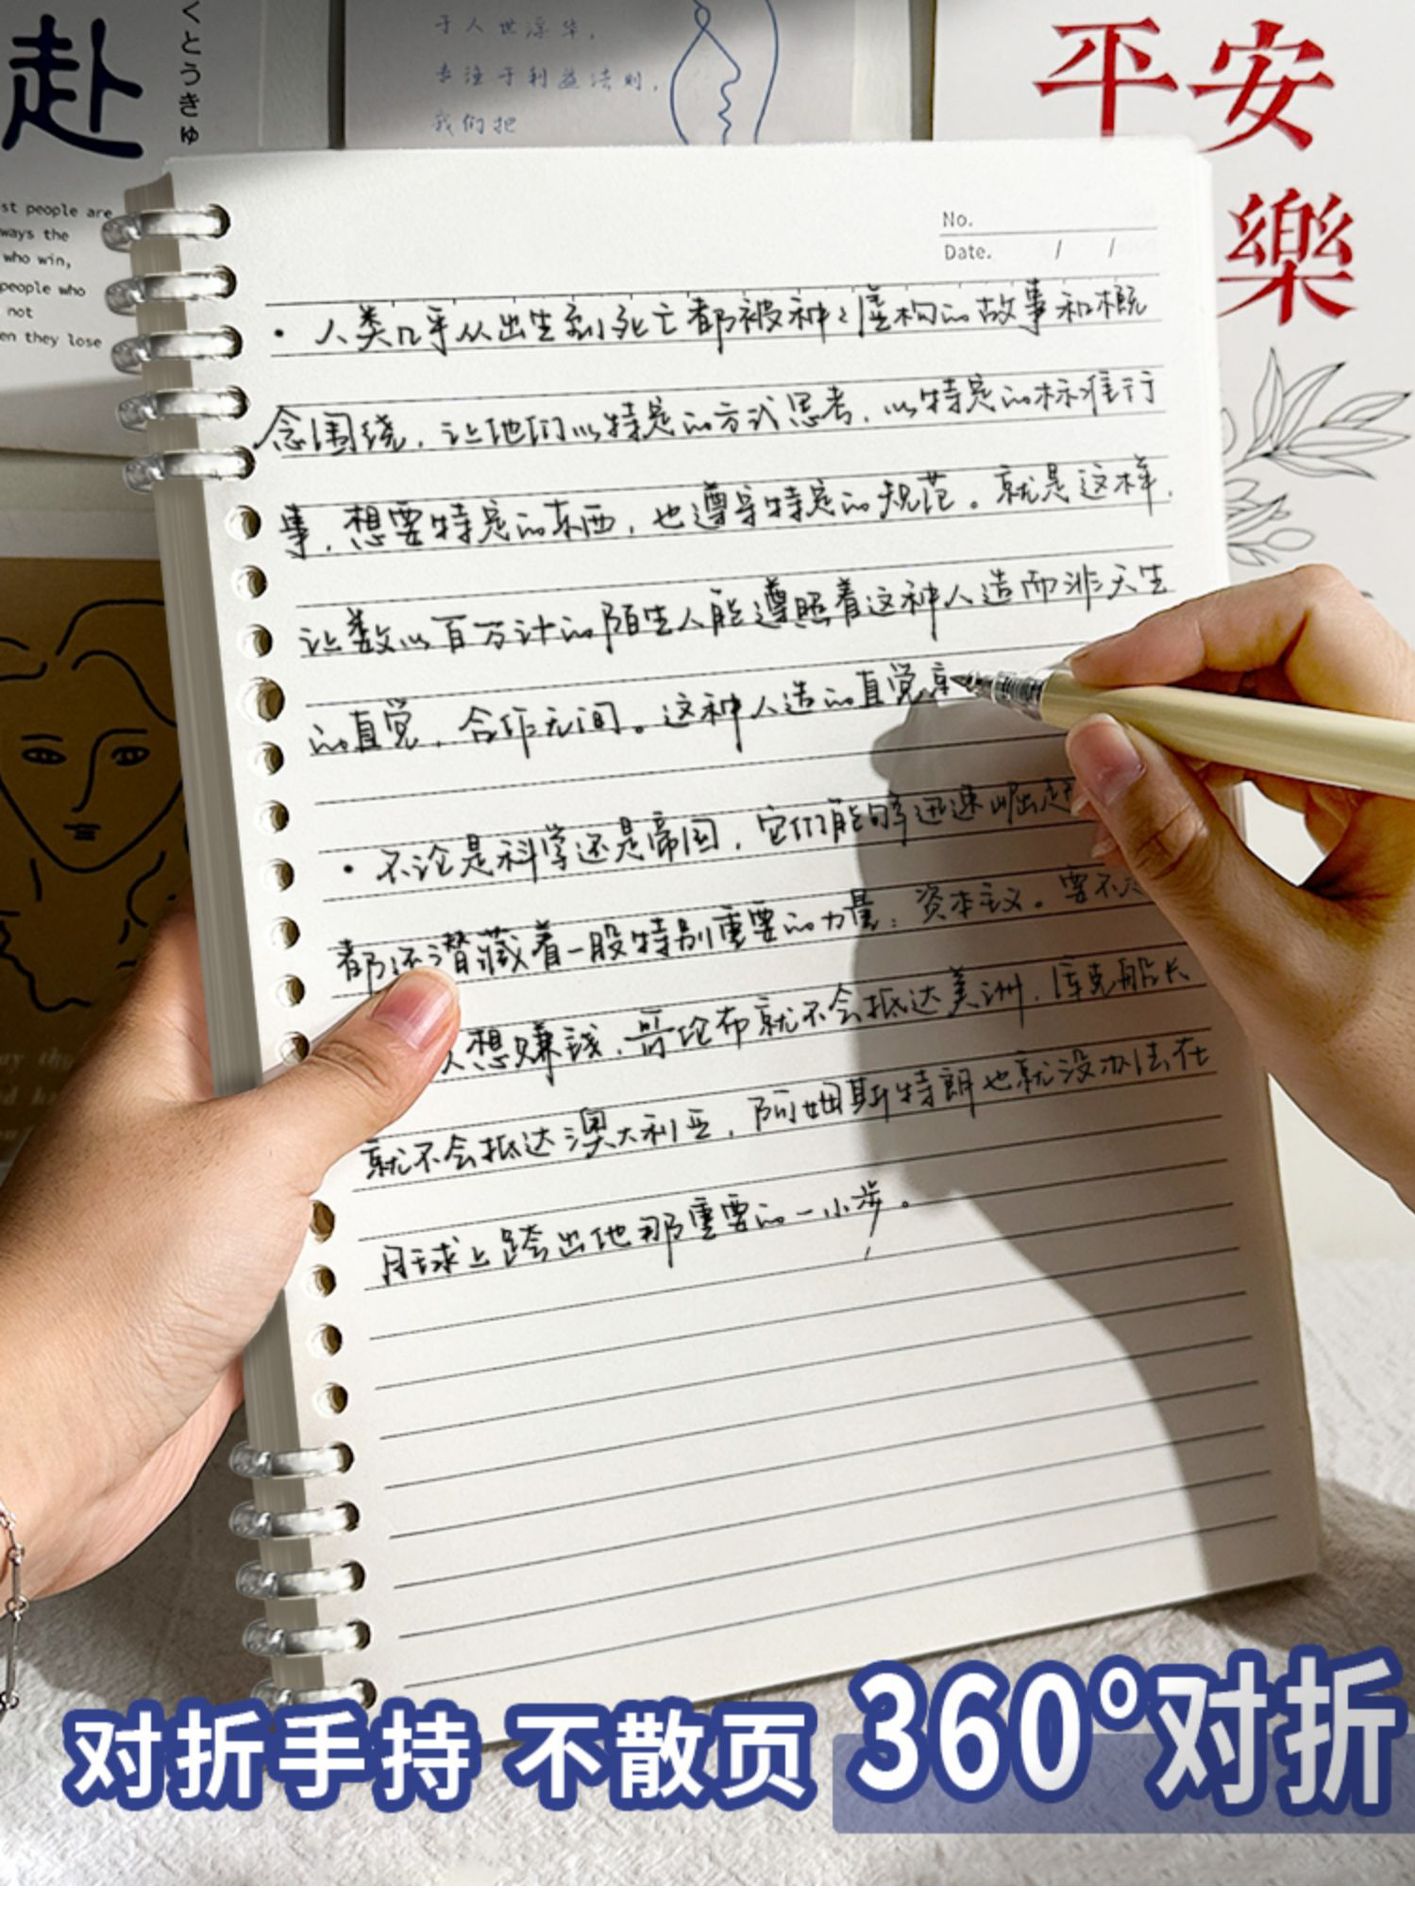 赴
くとうきゅ
st people are
ways the
who win,
people who
not
en they lose
于人世浮华，
专注于利益法则，
我们把
平安
樂
No.
Date. / /
·人类几乎从出生到死亡都被种种虚构的故事和概
念围绕，让他们以特定的方式思考，以特定的标准行
事，想要特定的东西，也遵守特定的规范。就是这样，
让数以百万计的陌生人能遵照着这种人造而非天生
的直觉，合作无间。这种人造的直觉
·不论是科学还是帝国，它们能够迅速崛起
都还潜藏着一股特别重要的力量：资本主义。要不
人想赚钱，哥伦布就不会抵达美洲，库克船长
就不会抵达澳大利亚，阿姆斯特朗也就没办法在
月球上跨出他那重要的一小步。
对折手持 不散页 360°对折